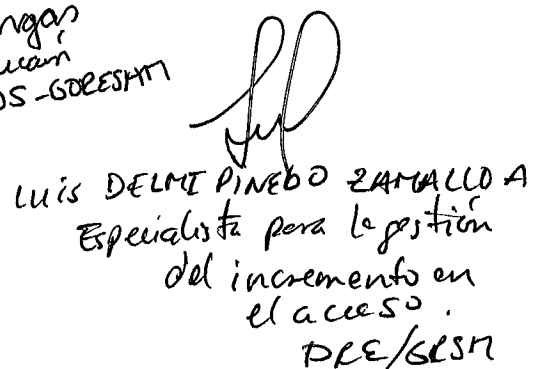 OS-GORESAM
LUIS DELMI PINEDO ZAMALLOA
Especialista para la gestión
del incremento en
el acceso.
DRE/GRSM